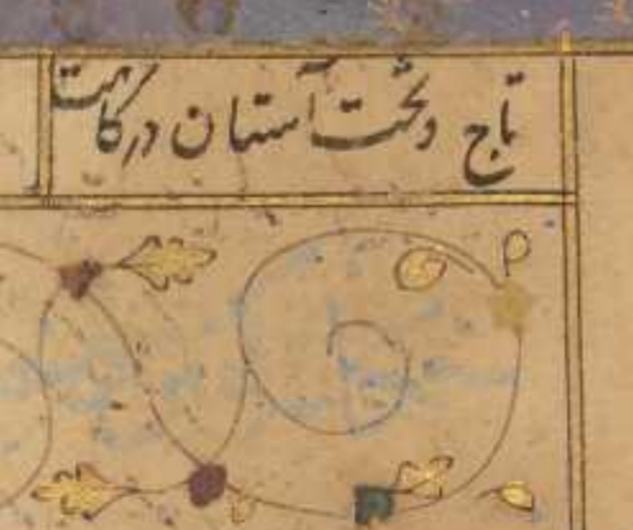 تاج وتخت آستان درگاهت